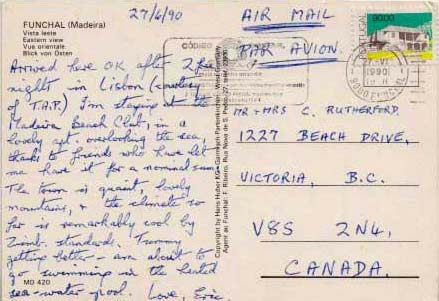 FUNCHAL (Madeira)
Vista leste
Eastern view
Vue orientale
Blick von Osten
27/4/90
Arrived here OK after 2
night in Lisbon (courtesy
of T.A.P.) I'm staying at the
Madeira Beach Club, in a
lovely apt. overlooking the sea,
thanks to friends who have let
me have it for a nominal sum.
The town is quaint, lovely
mountains, & the climate so
far is remarkably cool by
Zimb. standards. Tummy
getting better - am about to
go swimming in the heated
sea-water pool. Love, Eric.
MD 420
Copyright by Hans Huber KG · Garmisch-Partenkirchen · West Germany
Agent au Funchal: F. Ribeiro, Rua Nova de S. Pedro
AIR MAIL
PAR AVION.
CÓDIGO
PORTUGAL
90.00
1990
9000 FUNCHAL
MR + MRS C. RUTHERFORD
1227 BEACH DRIVE,
VICTORIA, B.C.
V8S 2N4,
CANADA.